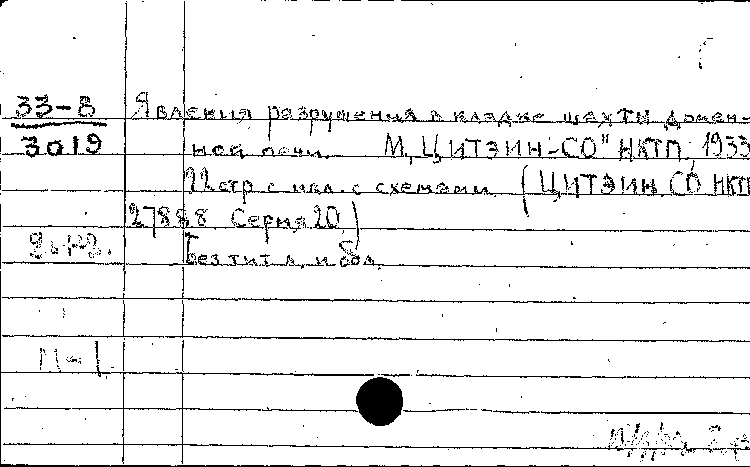 33-8 Явления разрушения в кладке шахты домен-
3019 ной печи. М, ЦИТЭИН-СО" НКТП, 1933
22 стр с илл. с схемами (ЦИТЭИН. СО НКТП
27888 Серия 20)
Без тит л. и обл.
М-1